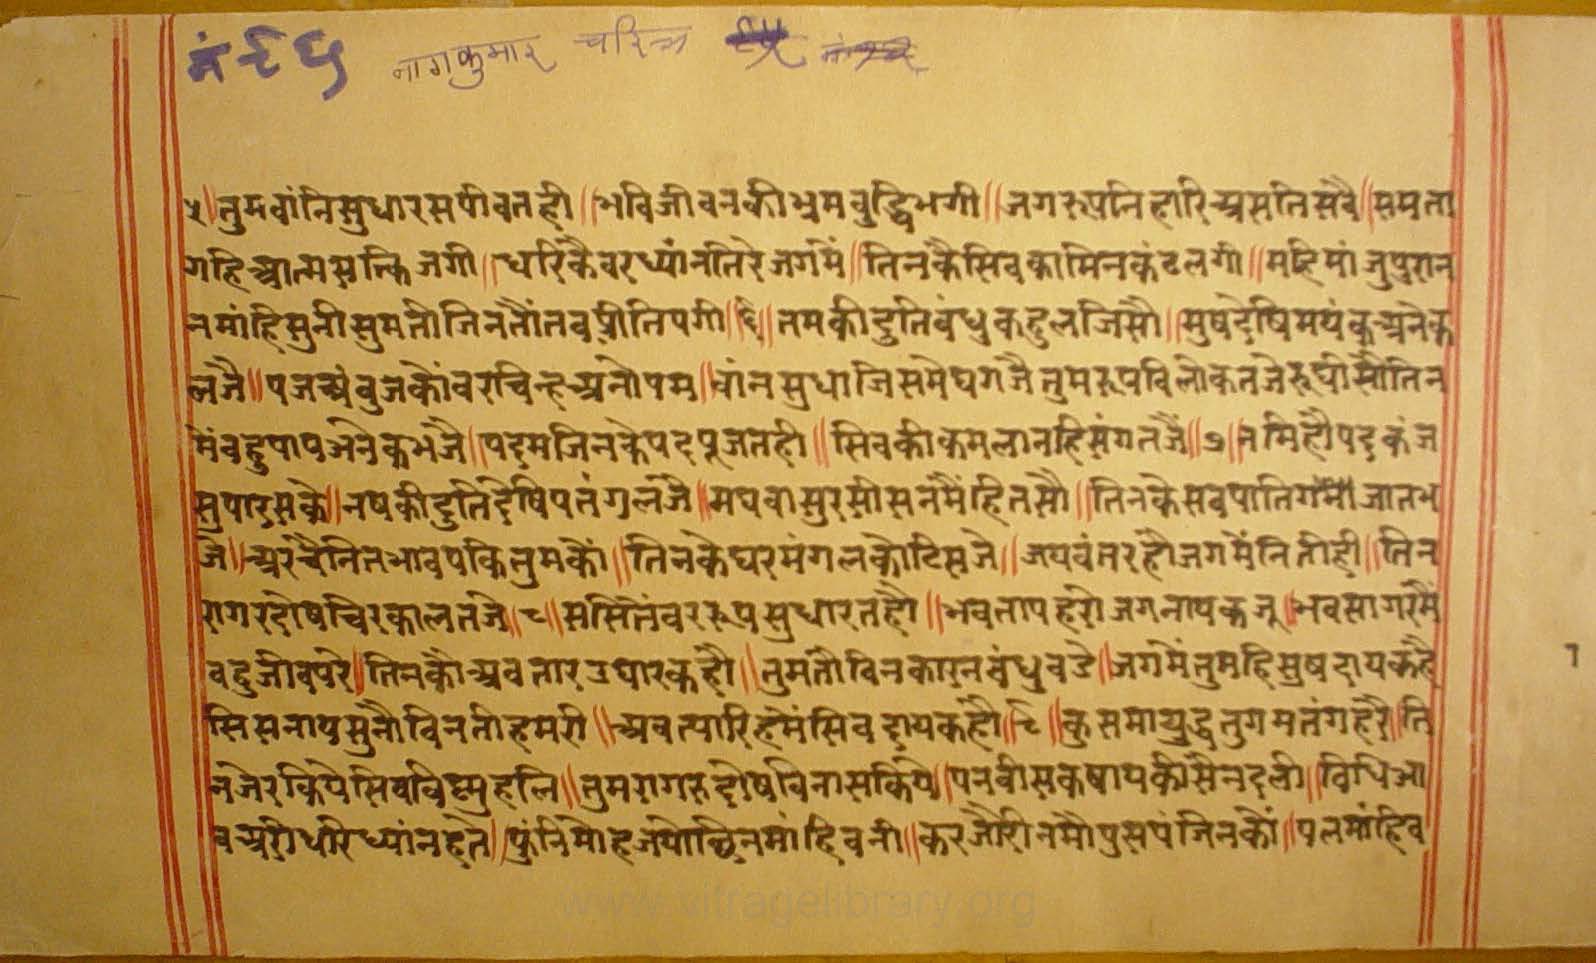 नं ९६ नागकुमार चरित्र
५॥ तुमवांनिसुधारसपीवतही॥ भविजीवनकीभ्रमबुद्धिभगी॥ जगरूपनिहारिअसतिसबै॥ समता
गहिआत्मसक्तिजगी॥ धरिकैवरध्यांनतिरेजगमें॥ तिनकैसिवकामिनकंठलगी॥ महिमांजुपुरान
नमांहिसुनीसुमतीजिनतौंतवप्रीतिपगी॥६॥ तमकीदुतिबंधुकहुलजिसौ॥ मुषदेषिमयंकअनेक
लजै॥ पजअंबुजकोंवरचिन्हअनोपम॥ वांनसुधाजिसमेघगजै तुमरूपविलोकतजे
मेंबहुपापअनेकभजै॥ पद्मजिनकेपदपूजतही॥ सिवकीकमलानहिसंगतजैं॥७॥ नमिहौंपदकंज
सुपारसके॥ नषकीदुतिदेषिपतंगलजै॥ मघवासुरसीसनमैंहितसौ॥ तिनकेसब जातभ
जे॥ अरचैनित तुमकों॥ तिनकेघरमंगलकोटिसजे॥ जयवंतरहौजगमेंनितीही॥ तिन
रागरदोषचिरकालतजे॥८॥ वररूपसुधारतहौ॥ भवतापहरोजगनायकजू॥ भवसागरमैं
बहुजीवपरे॥ तिनकौअवतारउधारकहौ॥ तुमतौविनकारनबंधुवडे॥ जगमेंतुमहिसुषदायकहै
सिसनायसुनौविनतीहमरी॥ हमेंसिवदायकहौ॥९॥ हरै॥ ति
तुमरागरुदोषविनासकिये॥ पनवीसकषायकीसैनदली॥ विधिआ
धरिध्यांनहते॥ करजोरीनमौपुसपंजिनकौं॥ पलमांहिव
१
www.vitragelibrary.org